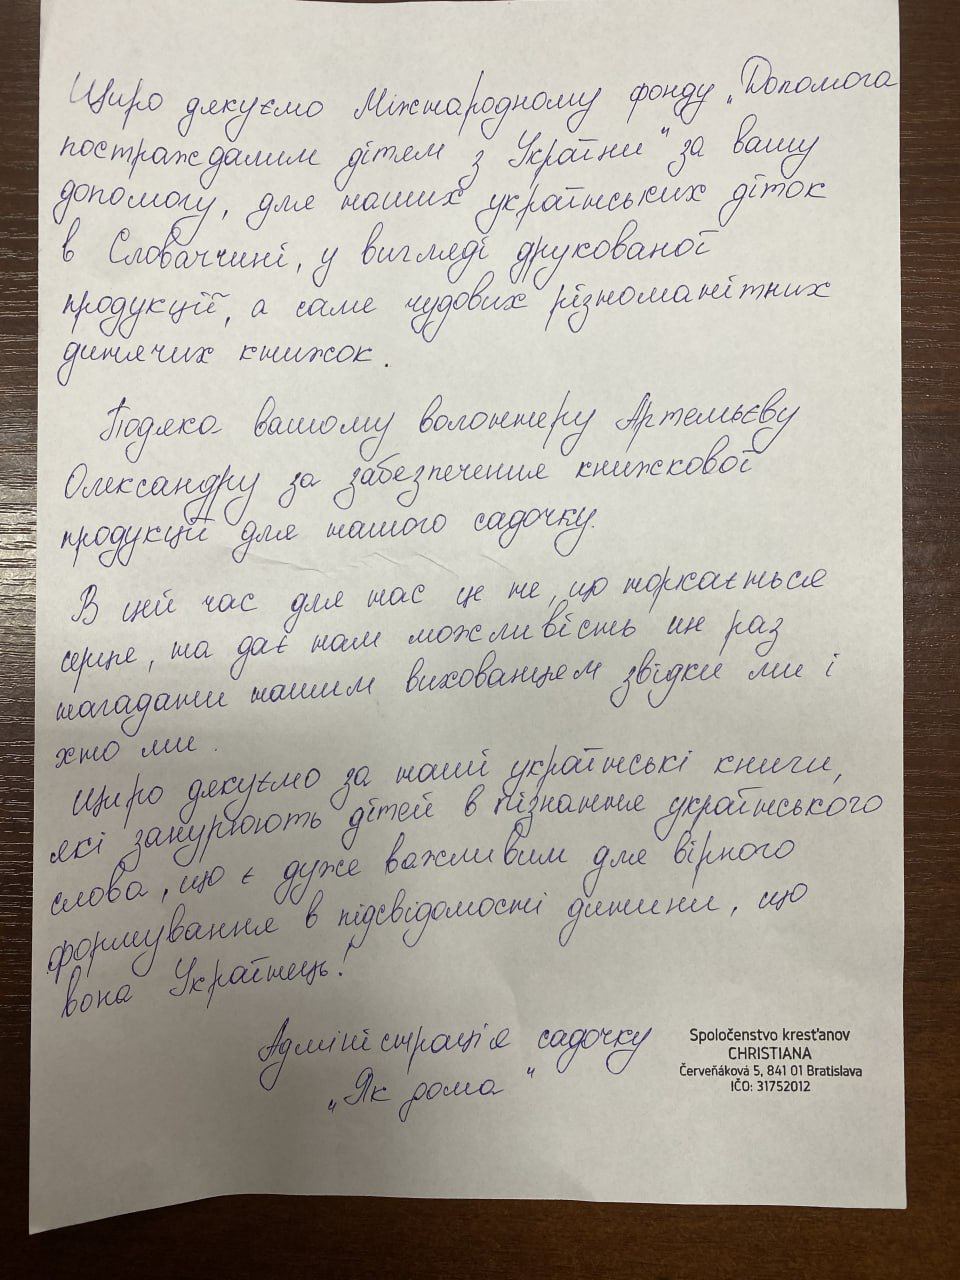 Щиро дякуємо Міжнародному фонду „Допомога
постраждалим дітям з України" за вашу
допомогу, для наших українських діток
в Словаччині, у вигляді друкованої
продукції, а саме чудових різноманітних
дитячих книжок.
Подяка вашому волонтеру Артемьєву
Олександру за забезпечення книжкової
продукції для нашого садочку.
В цей час для нас це те, що торкається
серце, та дає нам можливість ще раз
нагадати нашим вихованцям звідки ми і
хто ми.
Щиро дякуємо за наші українські книги,
які занурюють дітей в пізнання українського
слова, що є дуже важливим для вірного
формування в підсвідомості дитини, що
вона Українець!
Адміністрація садочку
„Як дома"
Spoločenstvo kresťanov
CHRISTIANA
Červeňáková 5, 841 01 Bratislava
IČO: 31752012